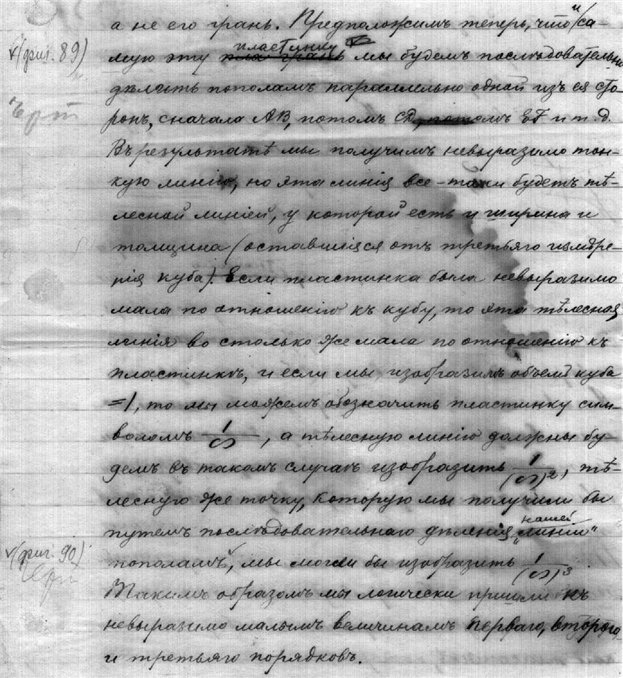 а не его грань. Предположимъ теперь, что и са-
√(фиг. 89) мую эту пластинку мы будемъ последовательно
Черт дѣлить пополамъ параллельно одной изъ ея сто-
ронъ, сначала AB, потомъ CD, потомъ EF и т.д.
Въ результатѣ мы получимъ невыразимо тон-
кую линію, но эта линія все-таки будетъ тѣ-
лесной линіей, у которой есть и ширина и
толщина (оставшіяся отъ третьяго измѣре-
нія куба). Если пластинка была невыразимо
мала по отношенію къ кубу, то эта тѣлесная
линія во столько же мала по отношенію къ
пластинкѣ, и если мы изобразимъ объемъ куба
=1, то мы можемъ обозначить пластинку сим-
воломъ 1/∞, а тѣлесную линію должны бу-
демъ въ такомъ случаѣ изобразить 1/(∞)², тѣ-
лесную же точку, которую мы получили бы
путемъ послѣдовательнаго дѣленія нашей „линіи“
√(фиг. 90) пополамъ, мы могли бы изобразить 1/(∞)³
Такимъ образомъ мы логически пришли къ
невыразимо малымъ величинамъ перваго, второго
и третьяго порядковъ.